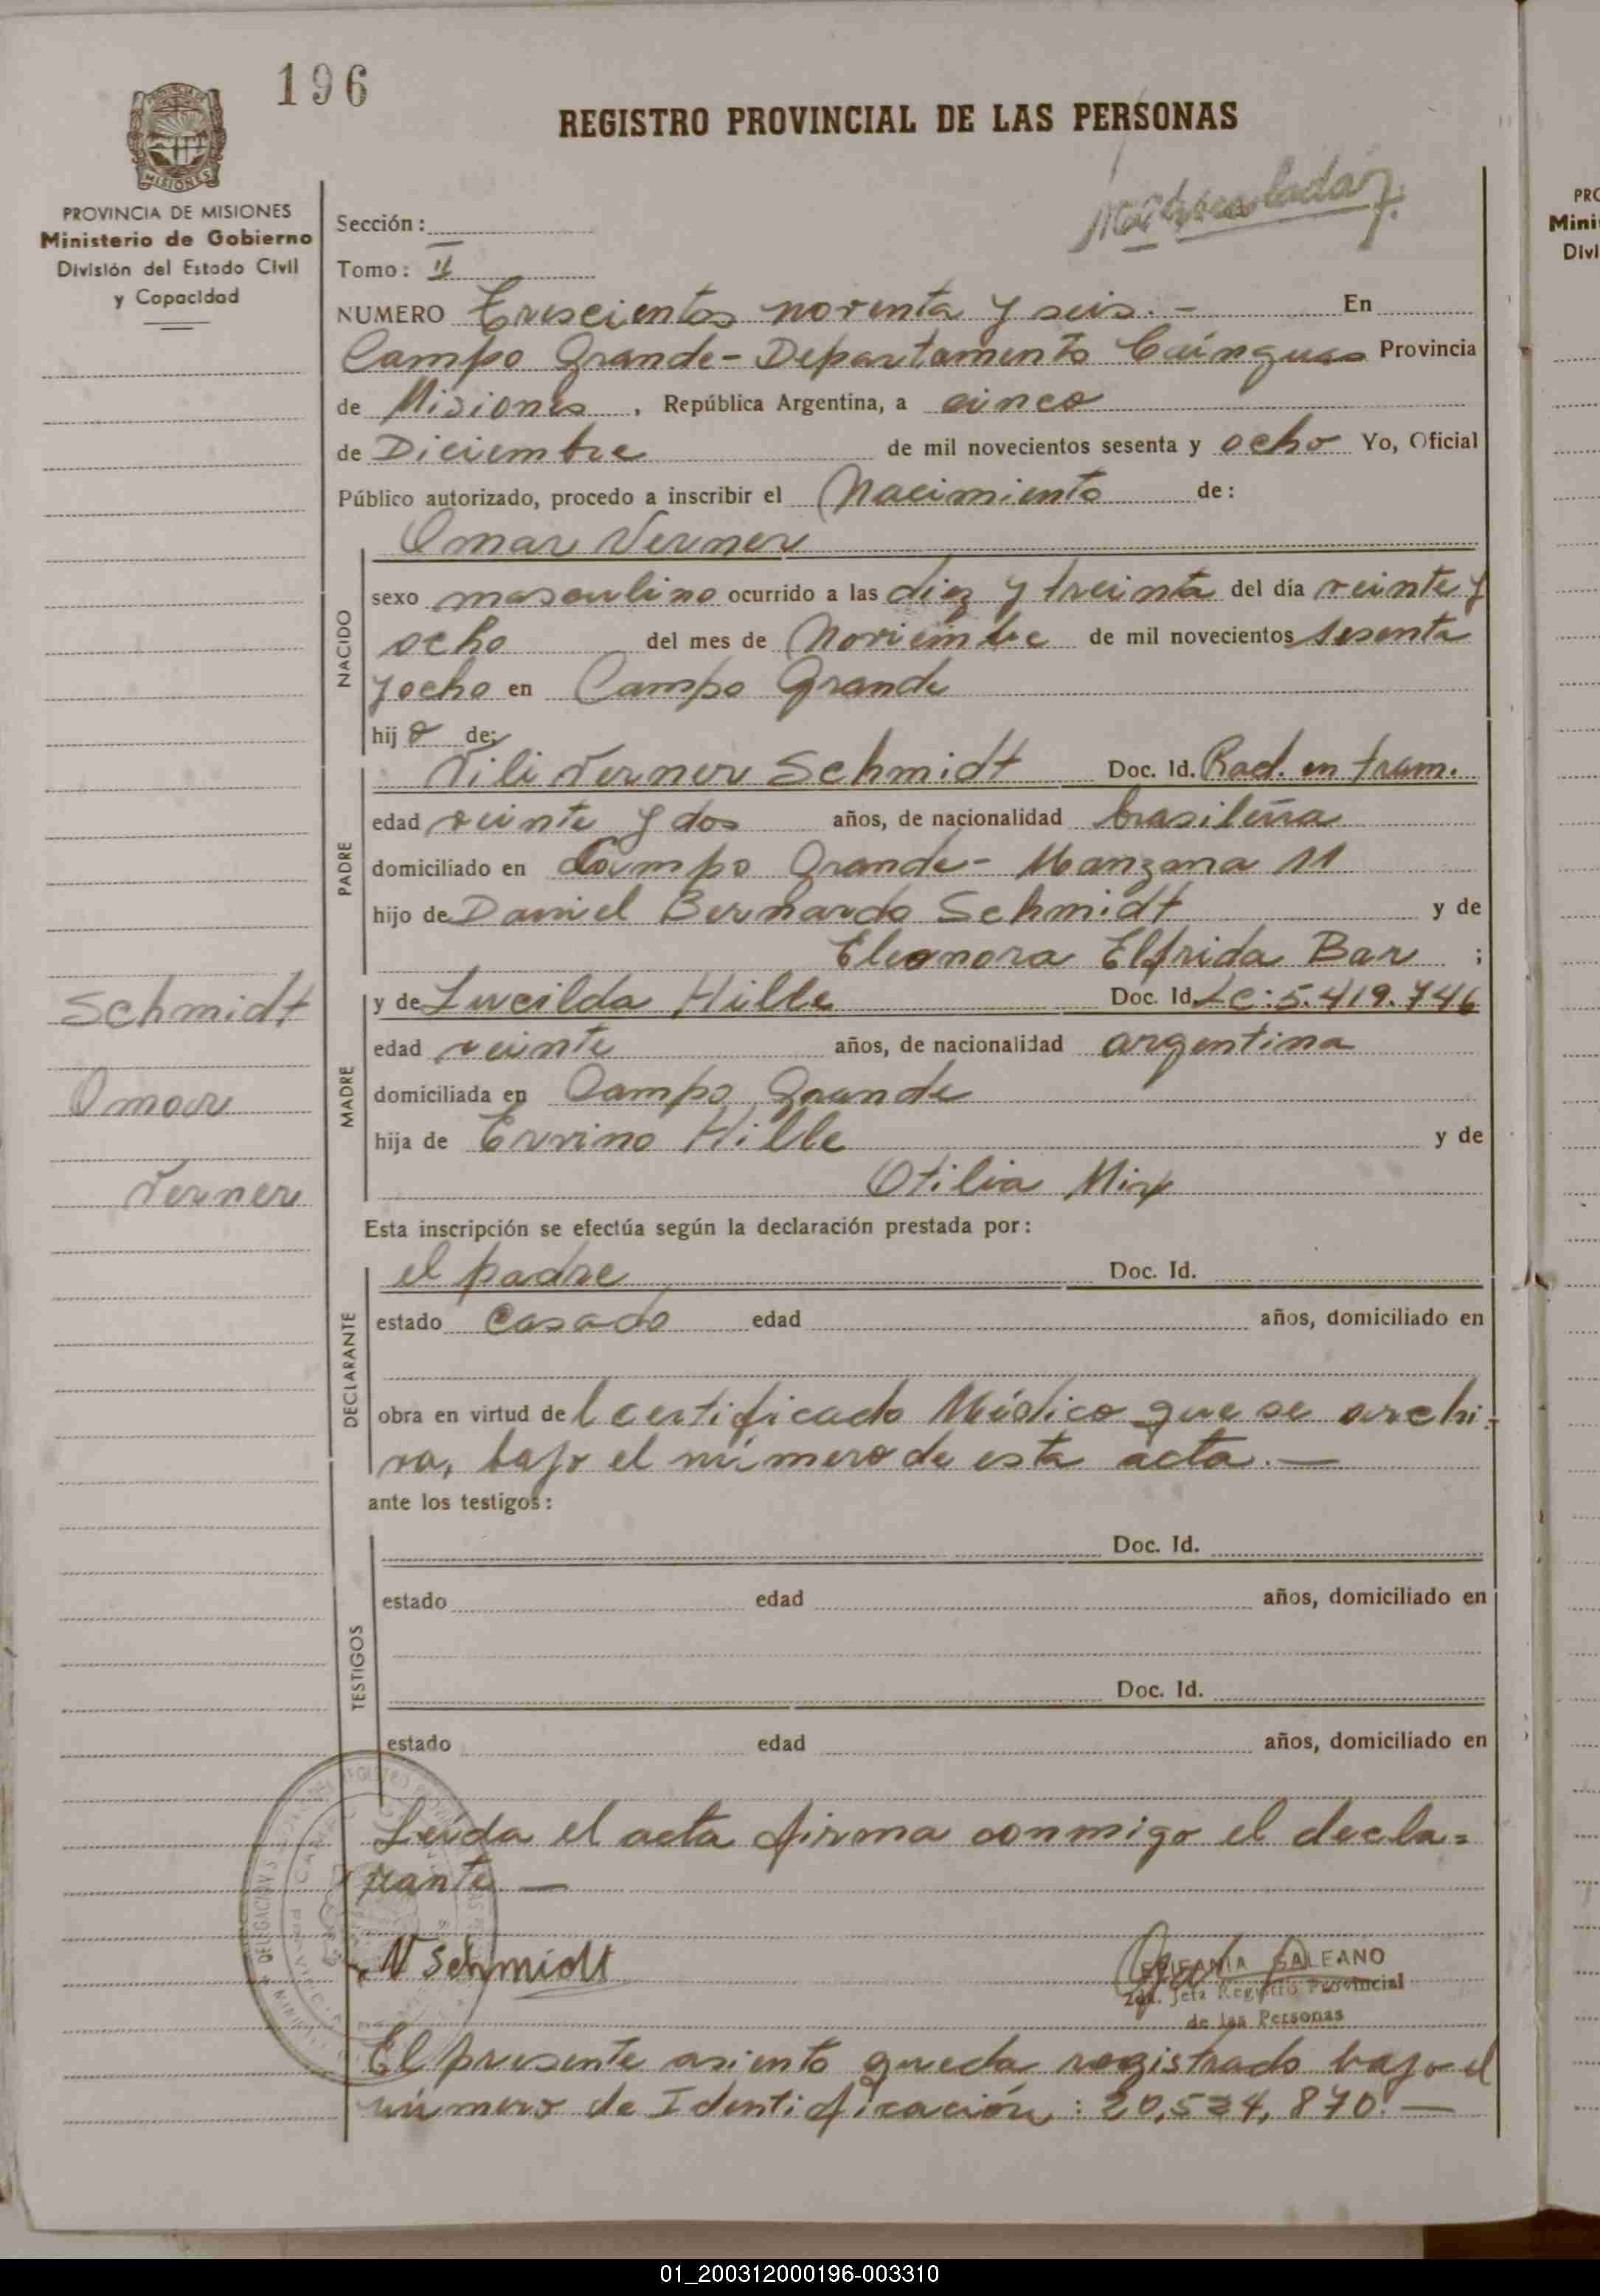 196
REGISTRO PROVINCIAL DE LAS PERSONAS
PROVINCIA DE MISIONES
Ministerio de Gobierno
División del Estado Civil
y Capacidad
Matriculado
Sección:
Tomo: II
NUMERO Trescientos noventa y seis.- En
Campo Grande - Departamento Cainguas Provincia
de Misiones, República Argentina, a cinco
de Diciembre de mil novecientos sesenta y ocho Yo, Oficial
Público autorizado, procedo a inscribir el Nacimiento de:
Omar Verner
NACIDO
sexo masculino ocurrido a las diez y treinta del día veinte y
ocho del mes de Noviembre de mil novecientos sesenta
y ocho en Campo Grande
hijo de:
PADRE
Vili Verner Schmidt Doc. Id. Rad. en tram.
edad veinte y dos años, de nacionalidad brasileña
domiciliado en Campo Grande - Manzana 11
hijo de Daniel Bernardo Schmidt y de
Eleonora Elfrida Bar ;
MADRE
y de Lucilda Hille Doc. Id. LC: 5.419.746
edad veinte años, de nacionalidad argentina
domiciliada en Campo Grande
hija de Ervino Hille y de
Otilia Mix
Schmidt
Omar
Verner
Esta inscripción se efectúa según la declaración prestada por:
DECLARANTE
el padre Doc. Id.
estado casado edad años, domiciliado en
obra en virtud del certificado Médico que se archi-
va, bajo el número de esta acta.—
ante los testigos:
TESTIGOS
Doc. Id.
estado edad años, domiciliado en
Doc. Id.
estado edad años, domiciliado en
Leida el acta firma conmigo el decla=
rante —
V Schmidt
EPIFANIA GALEANO
2da. Jefa Registro Provincial
de las Personas
El presente asiento queda registrado bajo el
número de Identificación: 20,534,870.—
01_200312000196-003310